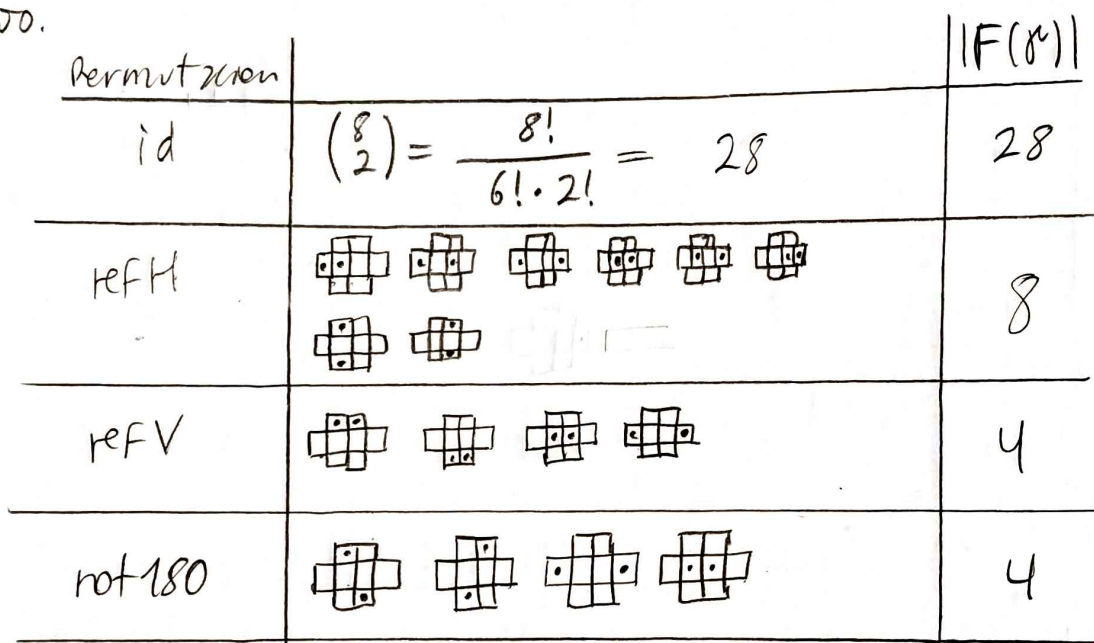 50.
Permutacion |F(γ)|
id (8 2) = 8! / 6!·2! = 28 28
refH 8
refV 4
rot180 4